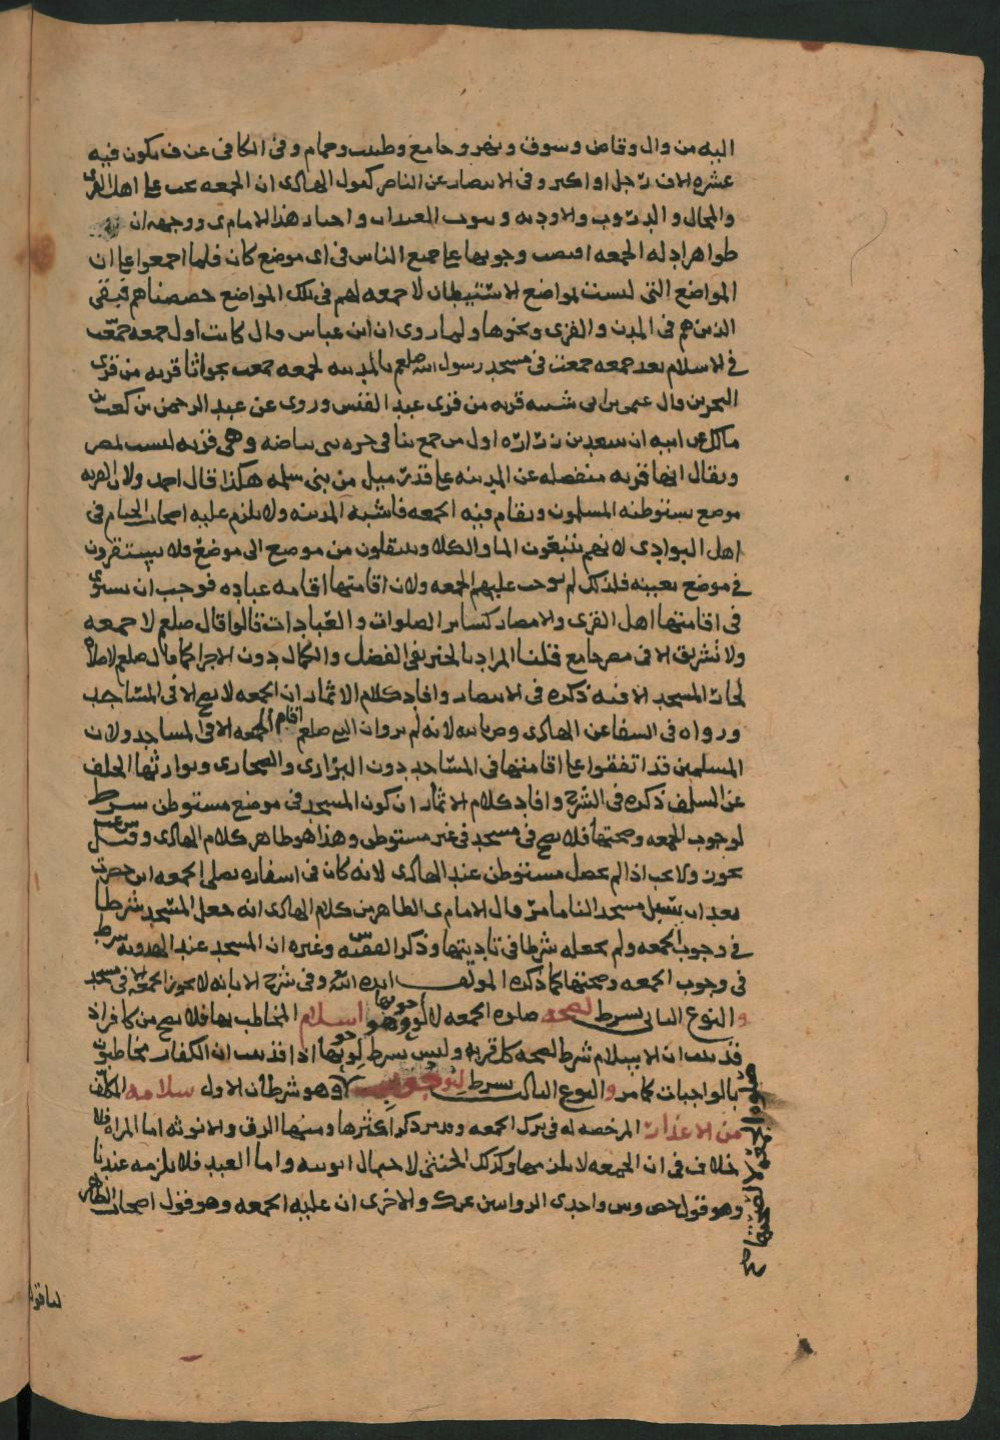 اليه من وال وقاض وسوق ونهر وجامع وطبيب وحمام وفي الكافي عن ف يكون فيه
عشره الاف رجل او اكثر وفي الانتصار عن الناصر كقول الهادى ان الجمعه تجب على اهل القرى
والمحال و الدروب والاوديه
ظواهر ادله الجمعه اقتضت وجوبها على جميع الناس في اى موضع كان فلما اجمعوا على ان
المواضع التي ليست بمواضع الاستيطان لا جمعه لهم في تلك المواضع خصصناهم فبقى
الذين هم في المدن والقرى ونحوها ولما روى ان ابن عباس قال كانت اول جمعه جمعت
في الاسلام بعد جمعه جمعت في مسجد رسول الله صلعم بالمدينه لجمعه جمعت بجواثا قريه من قرى
البحرين قال عثمن بن ابي شيبه قريه من قرى عبد القيس وروى عن عبد الرحمن بن كعب بن
مالك عن ابيه ان سعد بن زراره اول من جمع بنا في حره بنى بياضه وهي قريه ليست لمصر
ويقال انها قريه منفصله عن المدينه على قدر ميل من بنى سلمه هكذا قال احمد ولان القريه
موضع يستوطنه المسلمون ويقام فيه الجمعه فاشبه المدينه ولا يلزم عليه اصحاب الخيام في
اهل البوادى لانهم يتبعون الما والكلا وينتقلون من موضع الى موضع فلا يستقرون
في موضع بعينه فلذلك لم يوجب عليهم الجمعه ولان اقامتها اقامه عباده فوجب ان يستوى
في اقامتها اهل القرى والامصار كسائر الصلوات و العبادات قالوا قال صلعم لا جمعه
ولا تشريق الا في مصر جامع قلنا المراد بالخبر نفى الفضل والكمال دون الاجزا كما قال صلعم لا صلاة
لجار المسجد الا فيه ذكره في الانتصار وافاد كلام الاثمار ان الجمعه لا تصح الا في المساجد
ورواه في الشفا عن الهادى لانه لم يرو ان النبي صلعم اقام الجمعه الا في المساجد ولان
المسلمين قد اتفقوا على اقامتها في المساجد دون البرارى والصحارى وتوارثها الخلف
عن السلف ذكره في الشرح وافاد كلام الاثمار ان كون المسجد في موضع مستوطن شرط
لوجوب الجمعه وصحتها فلا تصح في مسجد في غير مستوطن وهذا هو ظاهر كلام الهادى وقيل
يجوز ولا تجب اذا لم يحصل مستوطن عند الهادى لانه كان في اسفاره يصلى الجمعه اين حضرت
بعد ان قال الامام ى الظاهر من كلام الهادى انه جعل المسجد شرطا
في وجوب الجمعه ولم يجعله شرطا في تاديتها وذكر الفقيه س وغيره ان المسجد عند الهدويه شرط
في وجوب الجمعه وصحتها كما ذكره المولف ايده الله وفي شرح الابانه لا يجوز الجمعه الا في مسجد
و النوع الثاني شرط لصحه صلاه الجمعه لا لوجوبها وهو اسلام المخاطب بها فلا تصح من كافر اذ
قد ثبت ان الاسلام شرط لصحه كل قربه وليس بشرط لوجوبها اذ قد ثبت ان الكفار مخاطبون
بالواجبات كما مر و النوع الثالث شرط لوجوب وهو شرطان الاول سلامه المكلف
من الاعذار المرخصه له في ترك الجمعه وقد مر ذكر اكثرها ومنها الرق والانوثه اما المراه فلا
خلاف في ان الجمعه لا تلزمها وكذلك الخنثى لاحتمال انوثته واما العبد فلا يلزمه عندنا
وهو قول ح ص و س واحدى الروايتين عن ك والاخرى ان عليه الجمعه وهو قول اصحاب الظاهر
لنا قوله